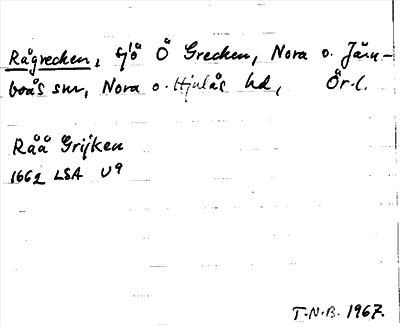 Rågrecken, sjö Ö Grecken, Nora o. Järn-
boås snr, Nora o. Hjulås hd, Ör. l.
Råå Grijken
1662 LSA U9
T.N.B. 1967.